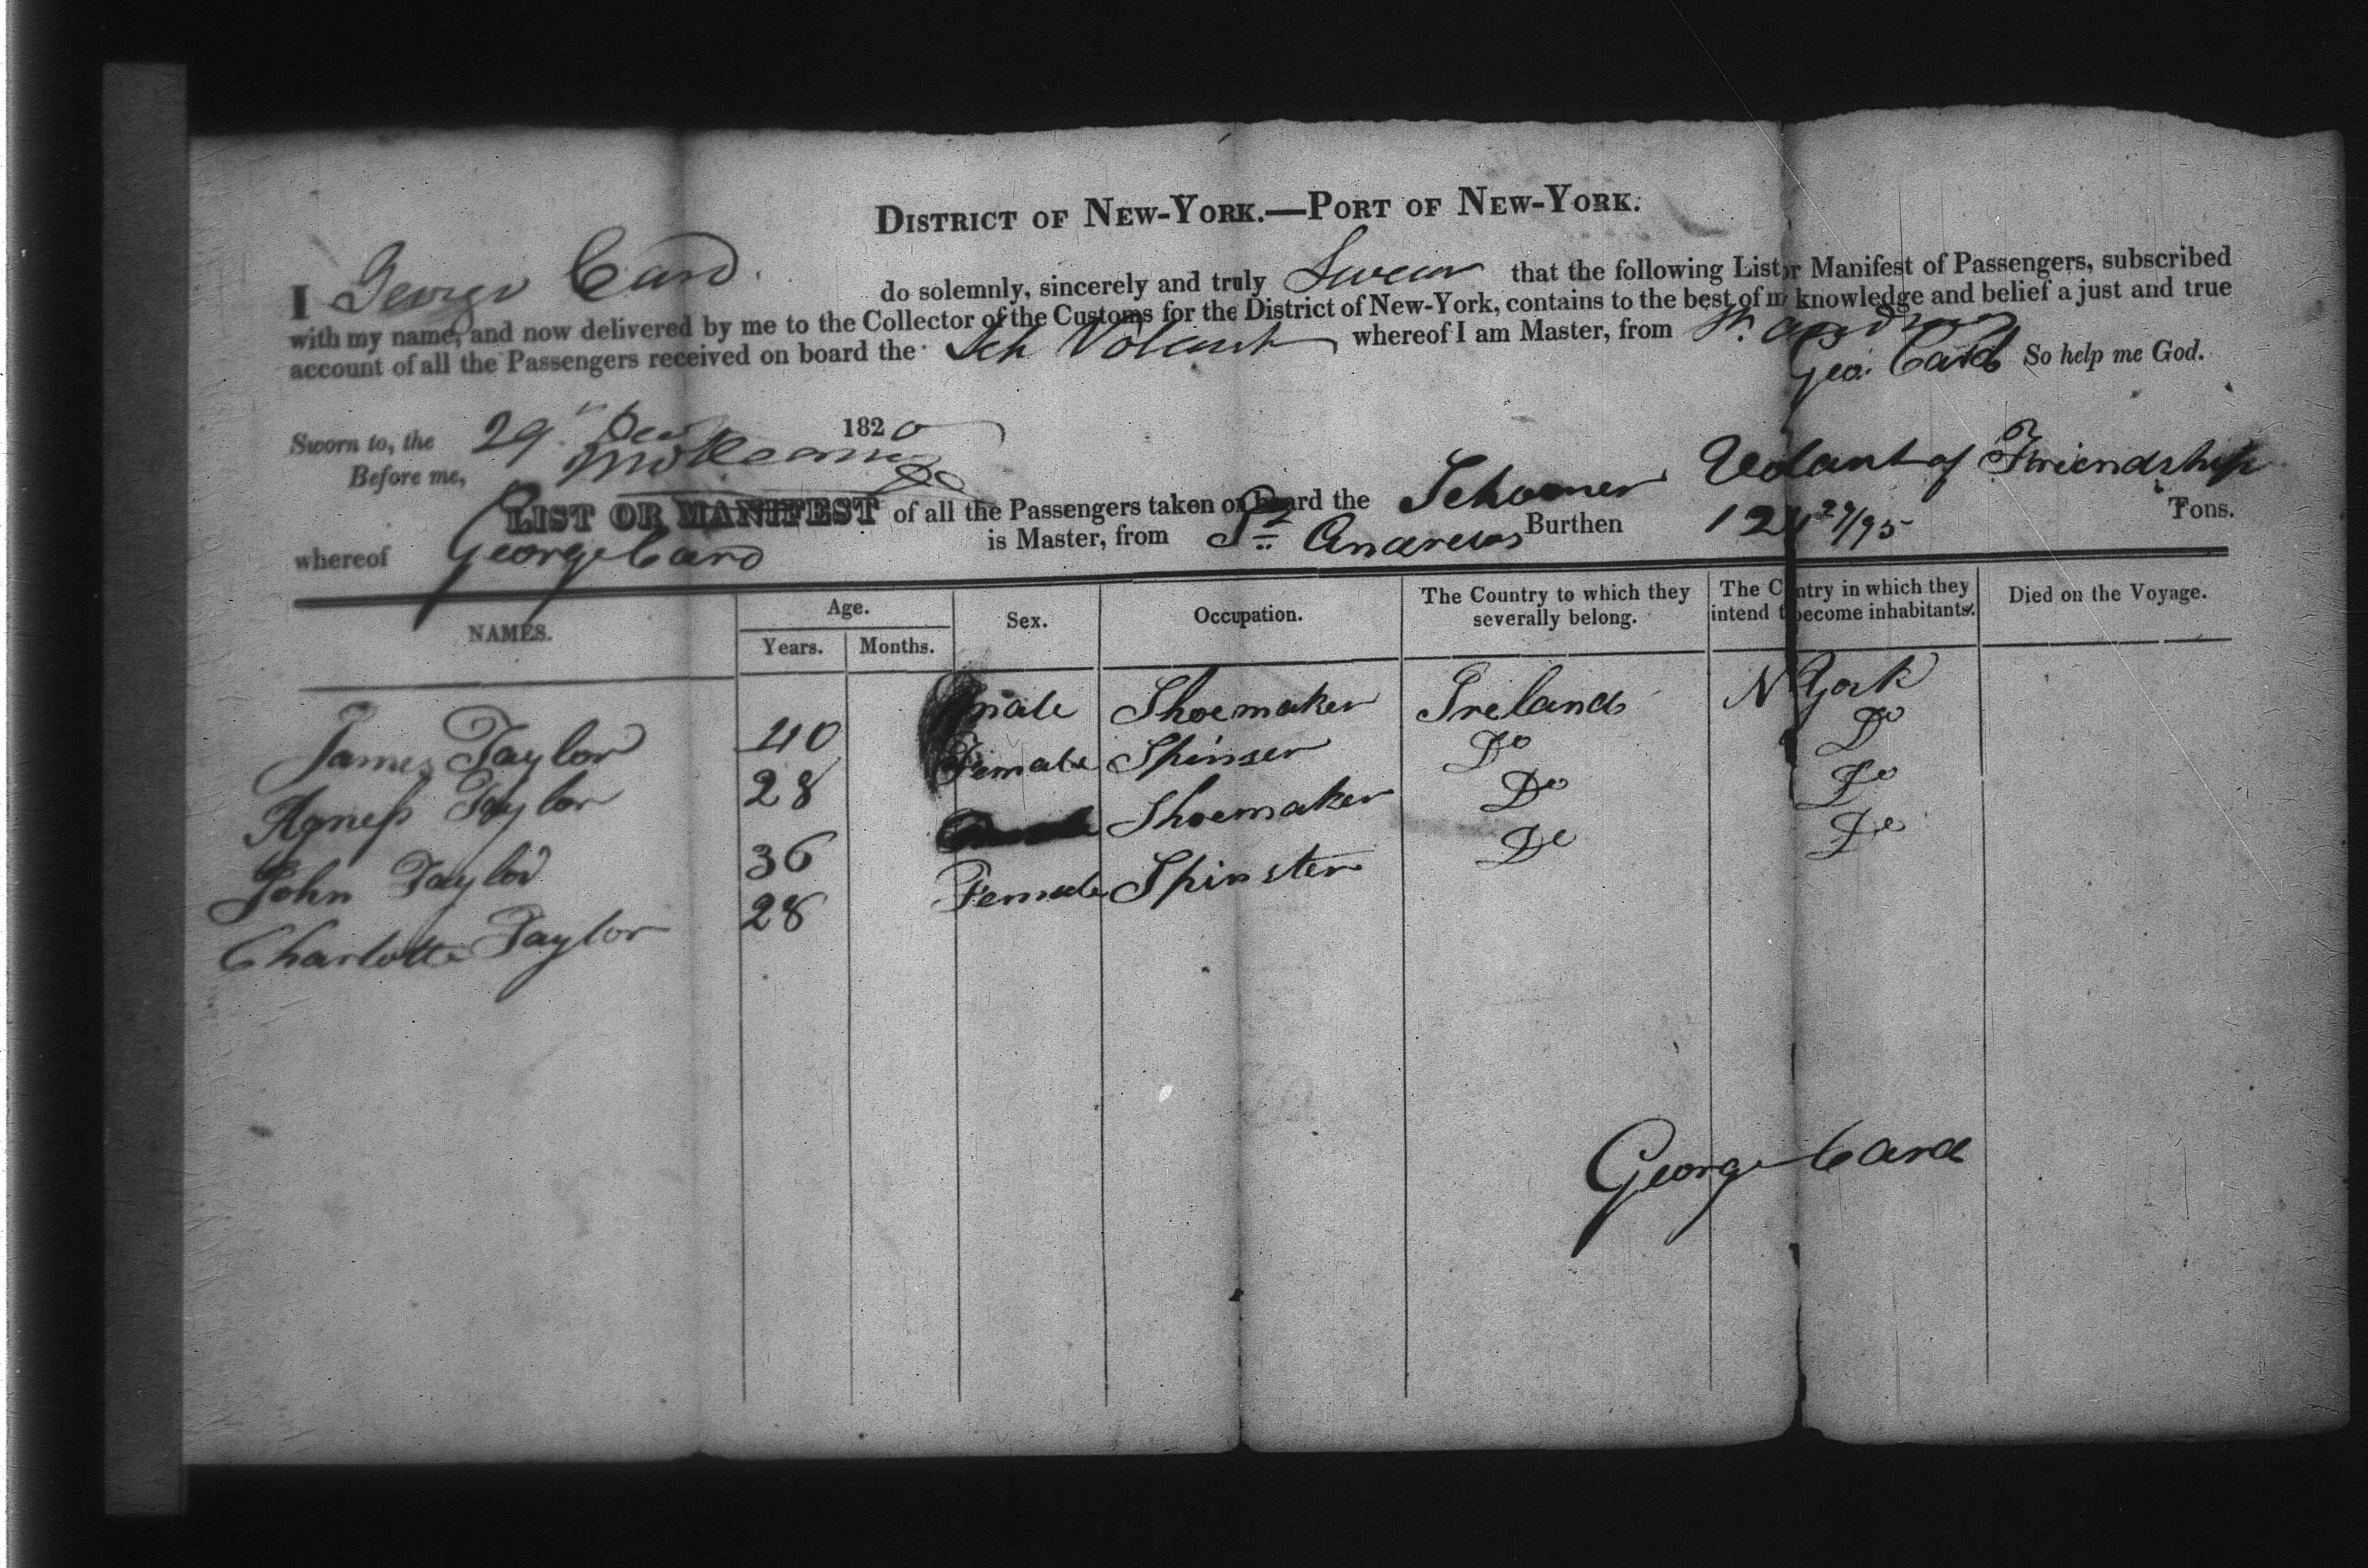 DISTRICT OF NEW-YORK.—PORT OF NEW-YORK.
I George Card. do solemnly, sincerely and truly Swear that the following List r Manifest of Passengers, subscribed
with my name, and now delivered by me to the Collector of the Customs for the District of New-York, contains to the best of m knowledge and belief a just and true
account of all the Passengers received on board the Sch Volant whereof I am Master, from St. Andrews
Geo. Card So help me God.
Sworn to, the 29th Dec 1820
Before me,
LIST OR MANIFEST of all the Passengers taken on board the Schooner Volant of Friendship
whereof George Card is Master, from St Andrews Burthen 124 27/95 Tons.
NAMES. Age. Years. Months. Sex. Occupation. The Country to which they severally belong. The C ntry in which they intend t become inhabitants. Died on the Voyage.
James Taylor 40 male Shoemaker Ireland N York
Agness Taylor 28 Female Spinser Do Do
John Taylor 36 Shoemaker Do Do
Charlotte Taylor 28 Female Spinster Do Do
George Card